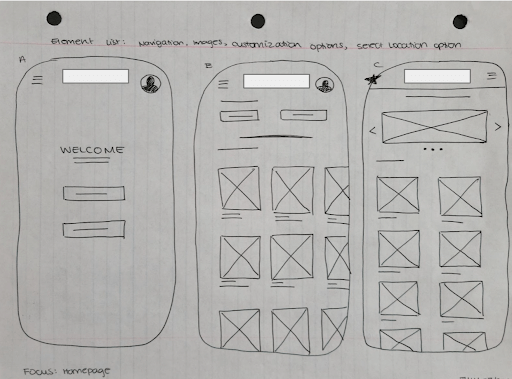 Element List: Navigation, images, customization options, select location option
A
B
C
WELCOME
Focus: Homepage